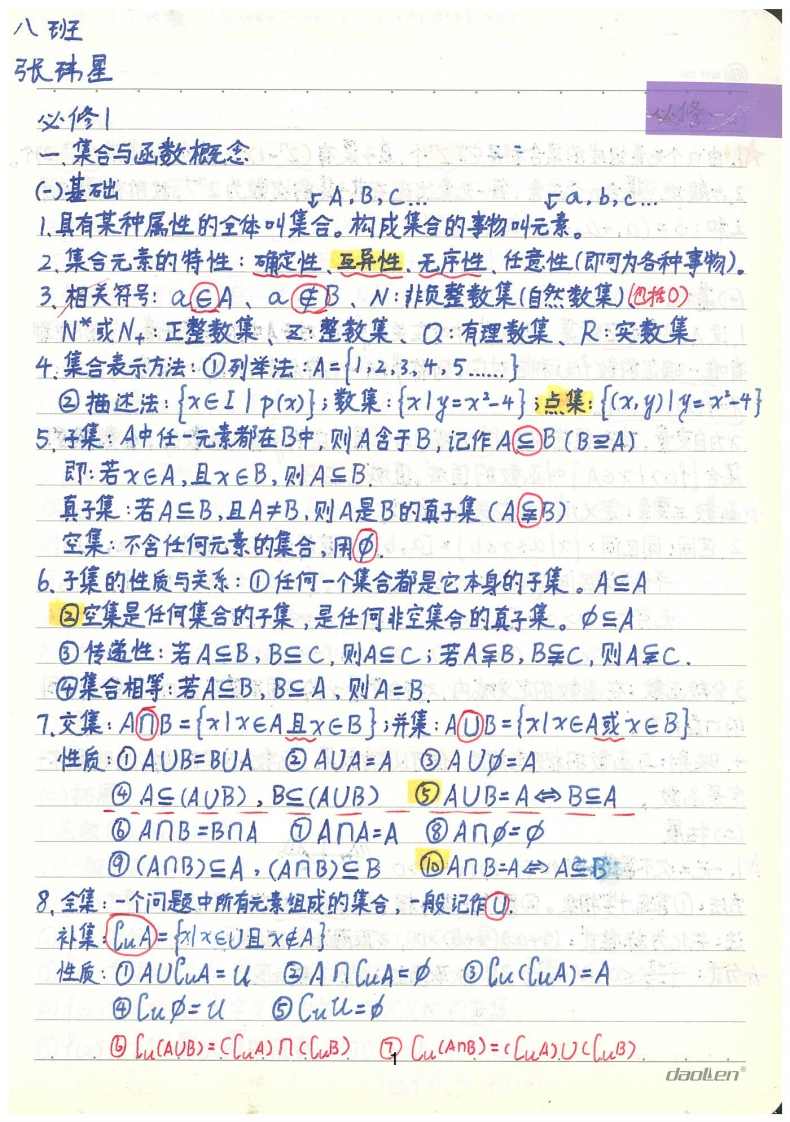 八班
张玮星
必修1
必修一
一.集合与函数概念
(一)基础
↓A,B,C… ↓a,b,c…
1.具有某种属性的全体叫集合。构成集合的事物叫元素。
2.集合元素的特性:确定性、互异性、无序性、任意性(即可为各种事物)。
3.相关符号:a∈A、a∉B、N:非负整数集(自然数集)(包括0)
N*或N₊:正整数集、Z:整数集、Q:有理数集、R:实数集
4.集合表示方法:①列举法:A={1,2,3,4,5……}
②描述法:{x∈I|p(x)};数集:{x|y=x²-4};点集:{(x,y)|y=x²-4}
5.子集:A中任一元素都在B中,则A含于B,记作A⊆B(B⊇A)
即:若x∈A,且x∈B,则A⊆B.
真子集:若A⊆B,且A≠B,则A是B的真子集(A⫋B)
空集:不含任何元素的集合,用∅
6.子集的性质与关系:①任何一个集合都是它本身的子集。A⊆A
②空集是任何集合的子集,是任何非空集合的真子集。∅⊆A
③传递性:若A⊆B,B⊆C,则A⊆C;若A⫋B,B⫋C,则A⫋C.
④集合相等:若A⊆B,B⊆A,则A=B.
7.交集:A∩B={x|x∈A且x∈B};并集:A∪B={x|x∈A或x∈B}
性质:①A∪B=B∪A ②A∪A=A ③A∪∅=A
④A⊆(A∪B),B⊆(A∪B) ⑤A∪B=A⇔B⊆A
⑥A∩B=B∩A ⑦A∩A=A ⑧A∩∅=∅
⑨(A∩B)⊆A,(A∩B)⊆B ⑩A∩B=A⇔A⊆B
8.全集:一个问题中所有元素组成的集合,一般记作U.
补集:∁uA={x|x∈U且x∉A}
性质:①A∪∁uA=U ②A∩∁uA=∅ ③∁u(∁uA)=A
④∁u∅=U ⑤∁uU=∅
⑥∁u(A∪B)=(∁uA)∩(∁uB) ⑦∁u(A∩B)=(∁uA)∪(∁uB)
1
daoLen®